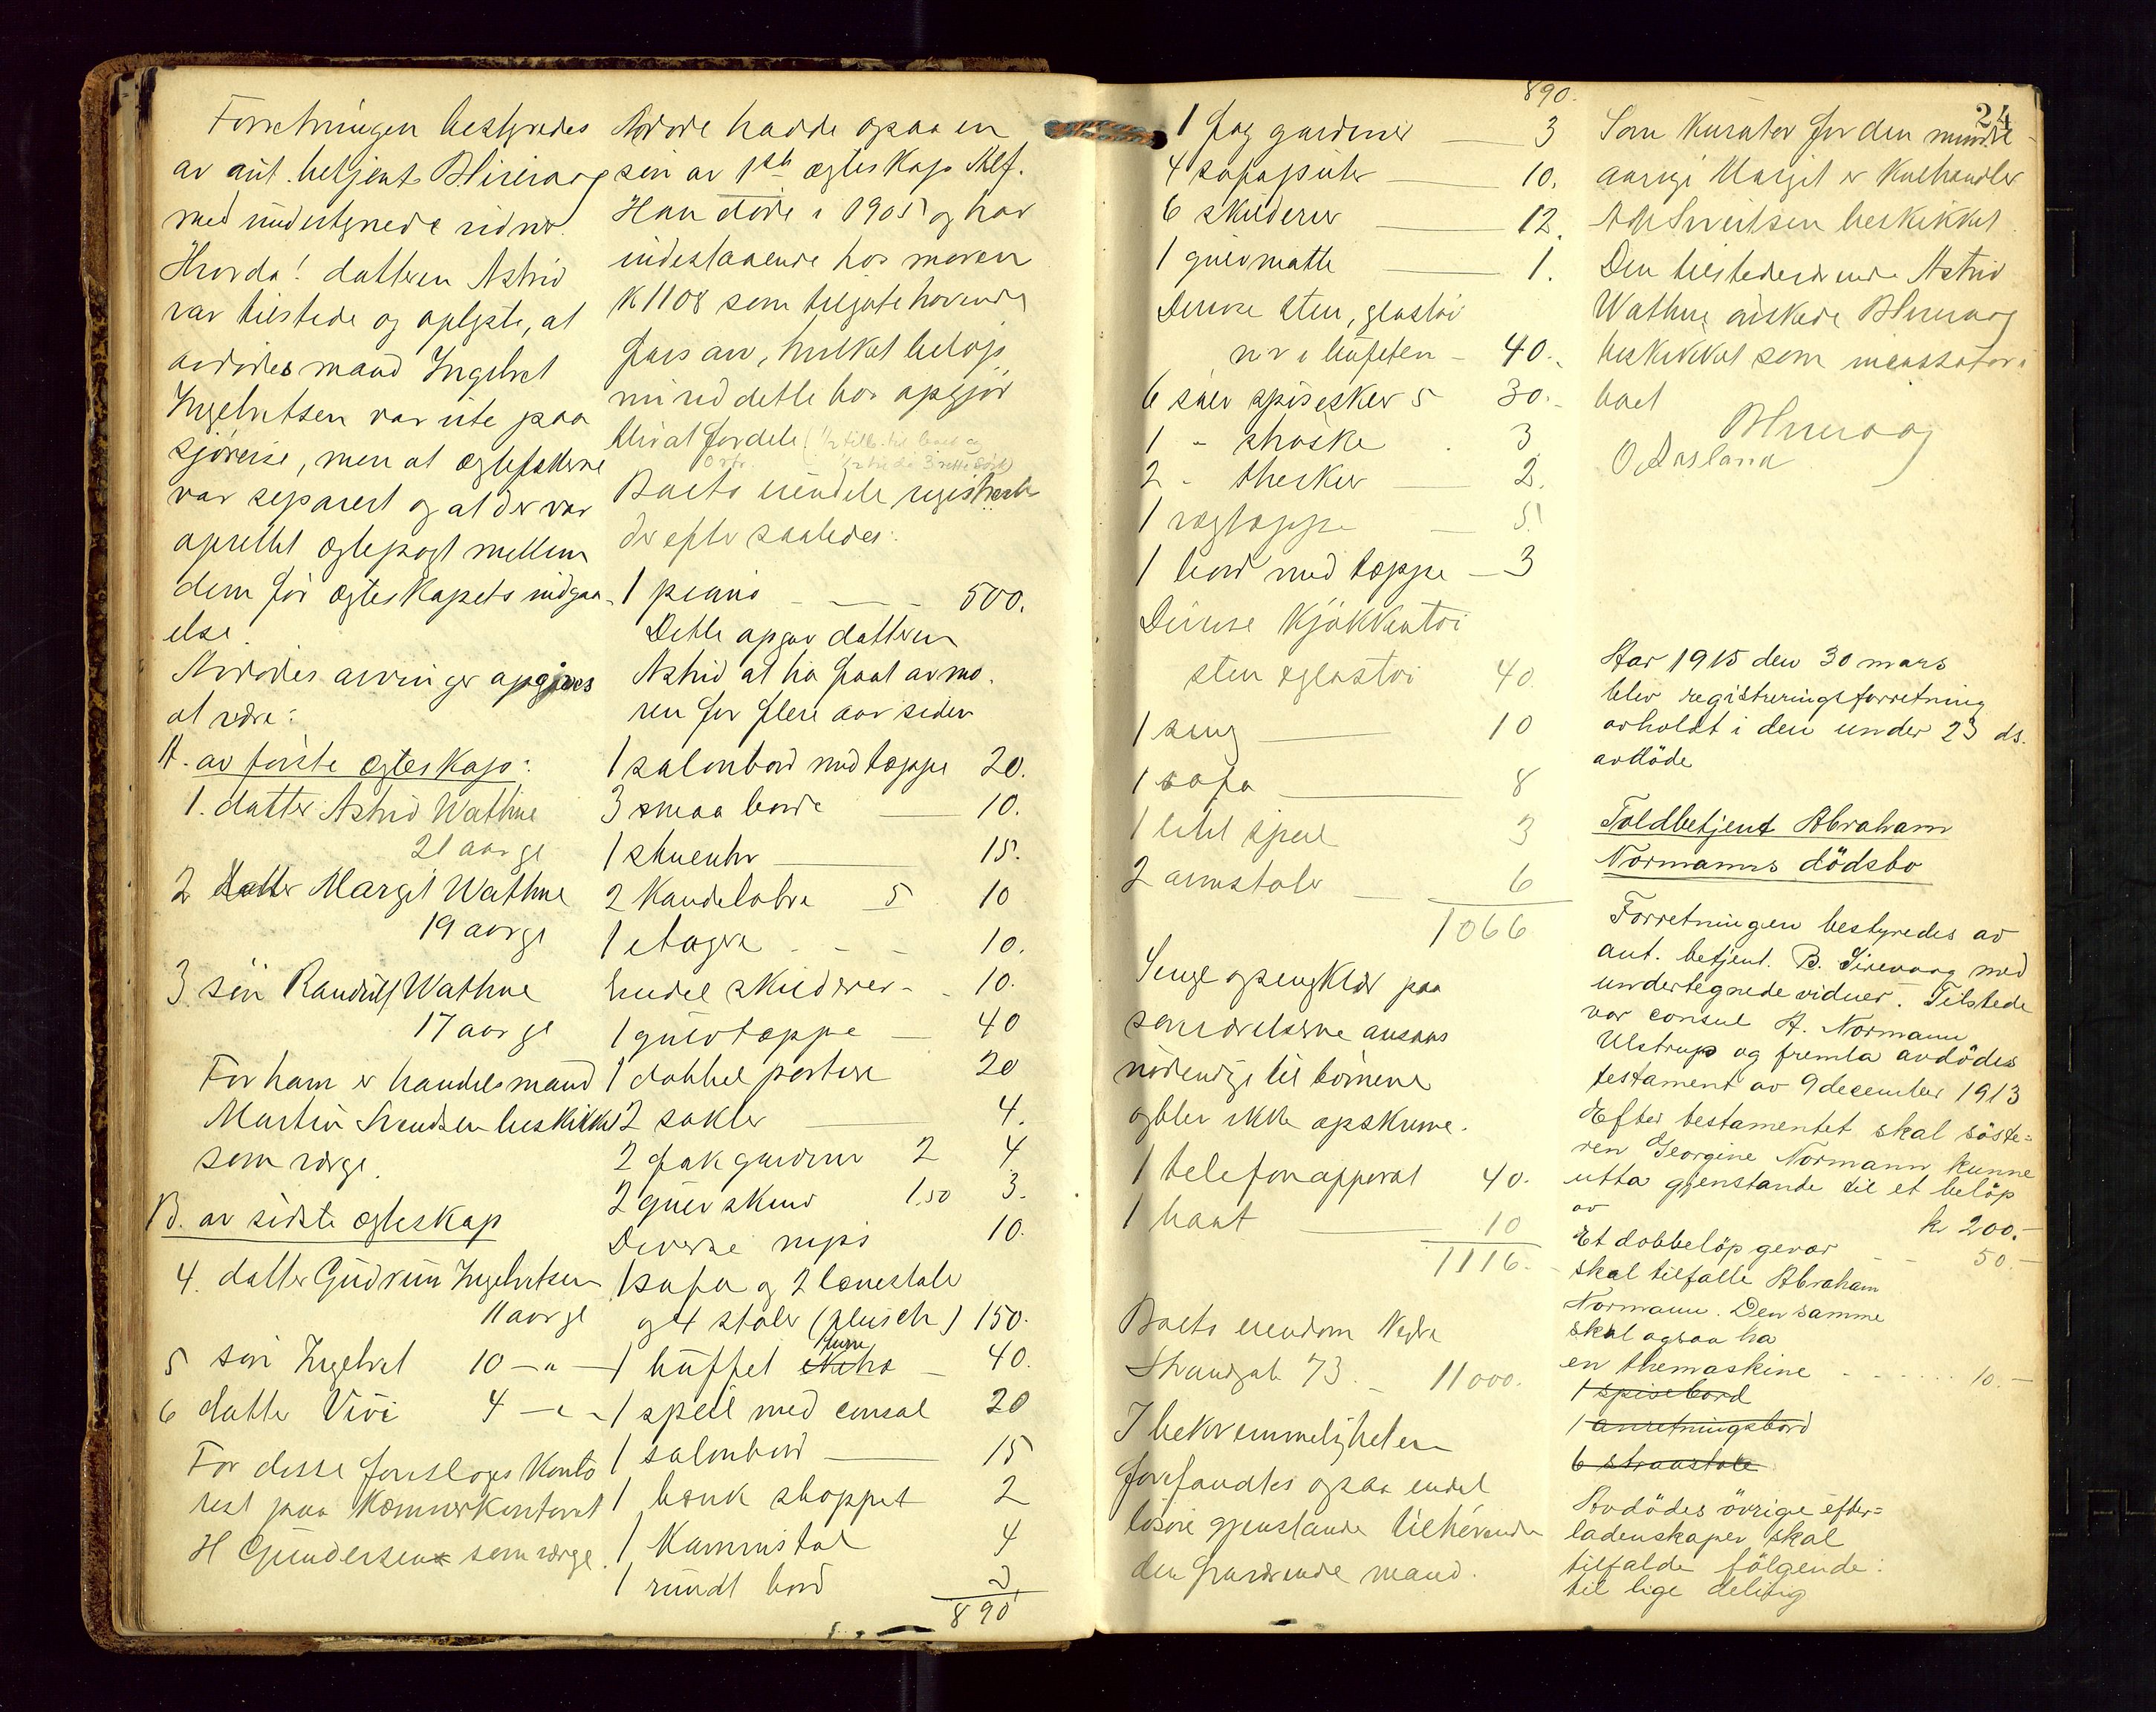 Forretningen bestyredes
av aut. betjent B Sirevaag
med undertegnede vidner.
Hvorda! datteren Astrid
var tilstede og oplyste, at
avdødes mand Ingelvet
Ingelvetsen var ute paa
sjøreise, men at ægtefolkene
var separert og at der var
oprettet ægtepagt mellem
dem før ægteskapets indgaa-
else.
Avdødes arvinger opgives
at være:
A. av første ægteskap:
1. datter Astrid Wathne
21 aar gl
2 datter Margit Wathne
19 aar gl
3 søn Randulf Wathne
17 aar gl
For ham er handelsmand
Martin Svendsen beskikket
som værge.
B. av sidste ægteskap
4. datter Gudrun Ingelvetsen
11 aar gl
5 søn Ingelvet 10 — " —
6 datter Vivi 4 — " —
For disse foreslages konto
rist paa Kæmnerkontoret
H Gundersen som værge.
Avdøde hadde ogsaa en
søn av 1ste ægteskap Alf.
Han døde i 1905 og har
indestaaende hos moren
K 1108 som tilgodehavende
farsarv, hvilket beløp
nu ved dette bos opgjør
blir at fordele
Boets eiendele registrertes
derefter saaledes:
1 piano — 500.
Dette opgav datteren
Astrid at ha faat av mo-
ren for flere aar siden
1 salonbord med tæppe 20.
3 smaa borde — 10.
1 stueuhr — 15.
2 Kandelabre 5 10
1 etagere - - - 10.
Endel skilderier - - 10.
1 gulvtæppe — 40
1 dobbel portiere 20
2 sokler — 4.
2 fak gardiner 2 4
2 gulvskind 1.50 3.
Diverse nips 10.
1 sofa og 2 lænestole
og 4 stoler (plusch) 150.
1 buffet 40.
1 speil med consol 20
1 salonbord — 15
1 bænk stoppet 2
1 Kammistol 4
1 rundt bord 3
890
890.
24
1 fag gardiner — 3
4 sofaputer — 10.
6 skilderier — 12.
1 gulvmatte — 1.
Diverse sten, glastøi
m v i buffeten - 40.
6 sølv spiseskeer 5 30.
1 " strøske . 3
2 " theskeer — 2.
1 vægtæppe — 5.
1 bord med tæppe — 3
Diverse Kjøkkentøi
sten & glastøi 40.
1 seng — 10
1 sofa — 8
1 litet speil 3
2 armstoler — 6
1066
Senge og sengklær paa
soveværelserne ansaas
nødvendige til børnene
og blev ikke opskrevne.
1 telefonapparat 40.
1 baat — 10
1116.
Boets eiendom Nedre
Strandgate 73. - 11000.
I bekvemmeligheten
forefandtes ogsaa endel
løsøre gjenstande tilhørende
den fraværende mand.
Som kurator for den mindre-
aarige Margit er Kulhandler
Sivertsen beskikket.
Den tilstedeværende Astrid
Wathne ønskede B Sirevaag
beskikket som incassator i
boet
B Sirevaag
O. Aasland
Aar 1915 den 30 mars
blev registreringsforretning
avholdt i den under 23 ds.
avdöde
Toldbetjent Abraham
Normanns dödsbo
Forretningen bestyredes av
aut. betjent. B. Sirevaag med
undertegnede vidner. Tilstede
var consul A. Normann
Ulstrup og fremla avdödes
testament av 9 december 1913
Efter testamentet skal söste=
ren Georgine Normann kunne
utta gjenstande til et belöp
av kr 200.-
Et dobbelöp gevær - - 50.-
skal tilfalle Abraham
Normann. Den samme
skal ogsaa ha
en themaskine - - - - - 10.-
1 spisebord
1 anretningsbord
6 straastole
Avdödes övrige efter=
ladenskaper skal
tilfalde fölgende:
til lige deling